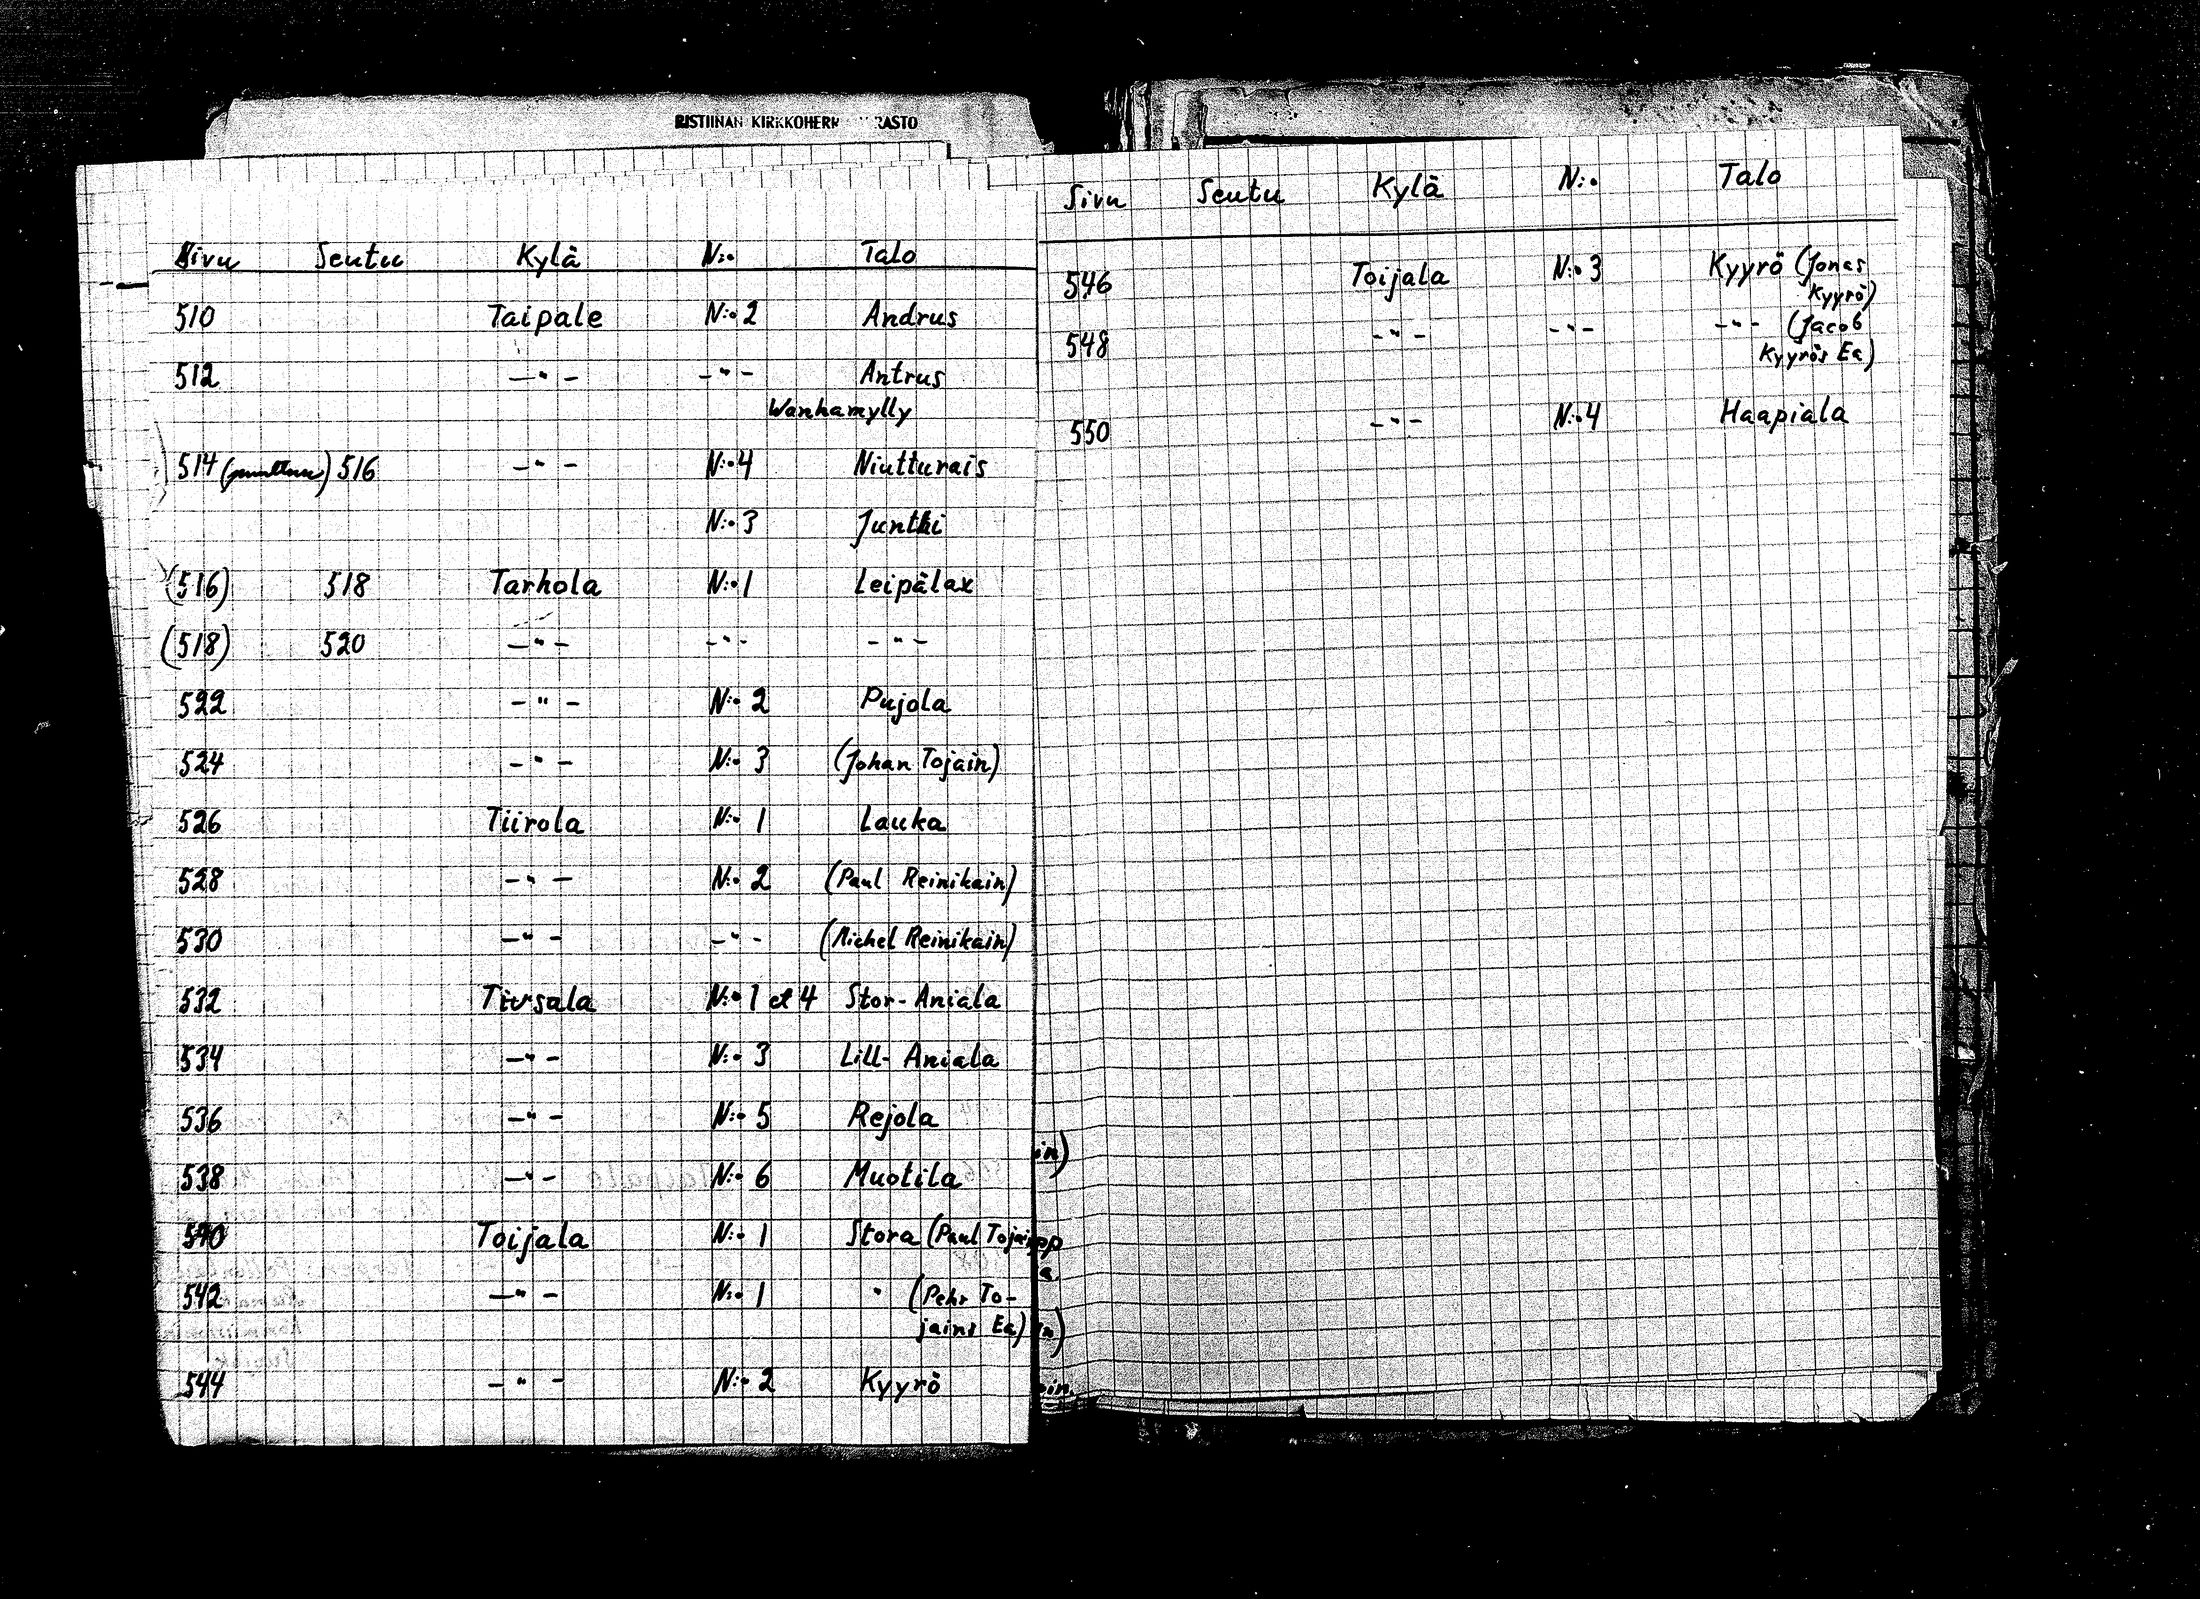 RISTIINAN KIRKKOHERR RASTO
Sivu Seutu Kylä N:o Talo
510 Taipale N:o 2 Andrus
512 -"- -"- Antrus
Wanhamylly
514 (puuttuu) 516 -"- N:o 4 Niutturais
N:o 3 Juntti
(516) 518 Tarhola N:o 1 Leipälax
(518) 520 -"- -"- -"-
522 -"- N:o 2 Pujola
524 -"- N:o 3 (Johan Tojain)
526 Tiirola N:o 1 Lauka
528 -"- N:o 2 (Paul Reinikain)
530 -"- -"- (Michel Reinikain)
532 Tiusala N:o 1 et 4 Stor-Aniala
534 -"- N:o 3 Lill-Aniala
536 -"- N:o 5 Rejola
538 -"- N:o 6 Muotila
540 Toijala N:o 1 Stora (Paul Tojain
542 -"- N:o 1 " (Pehr To-
jains Ea)
544 -"- N:o 2 Kyyrö
Sivu Seutu Kylä N:o Talo
546 Toijala N:o 3 Kyyrö (Jonas
Kyyrö)
548 -"- -"- -"- (Jacob
Kyyrös Ea)
550 -"- N:o 4 Haapiala